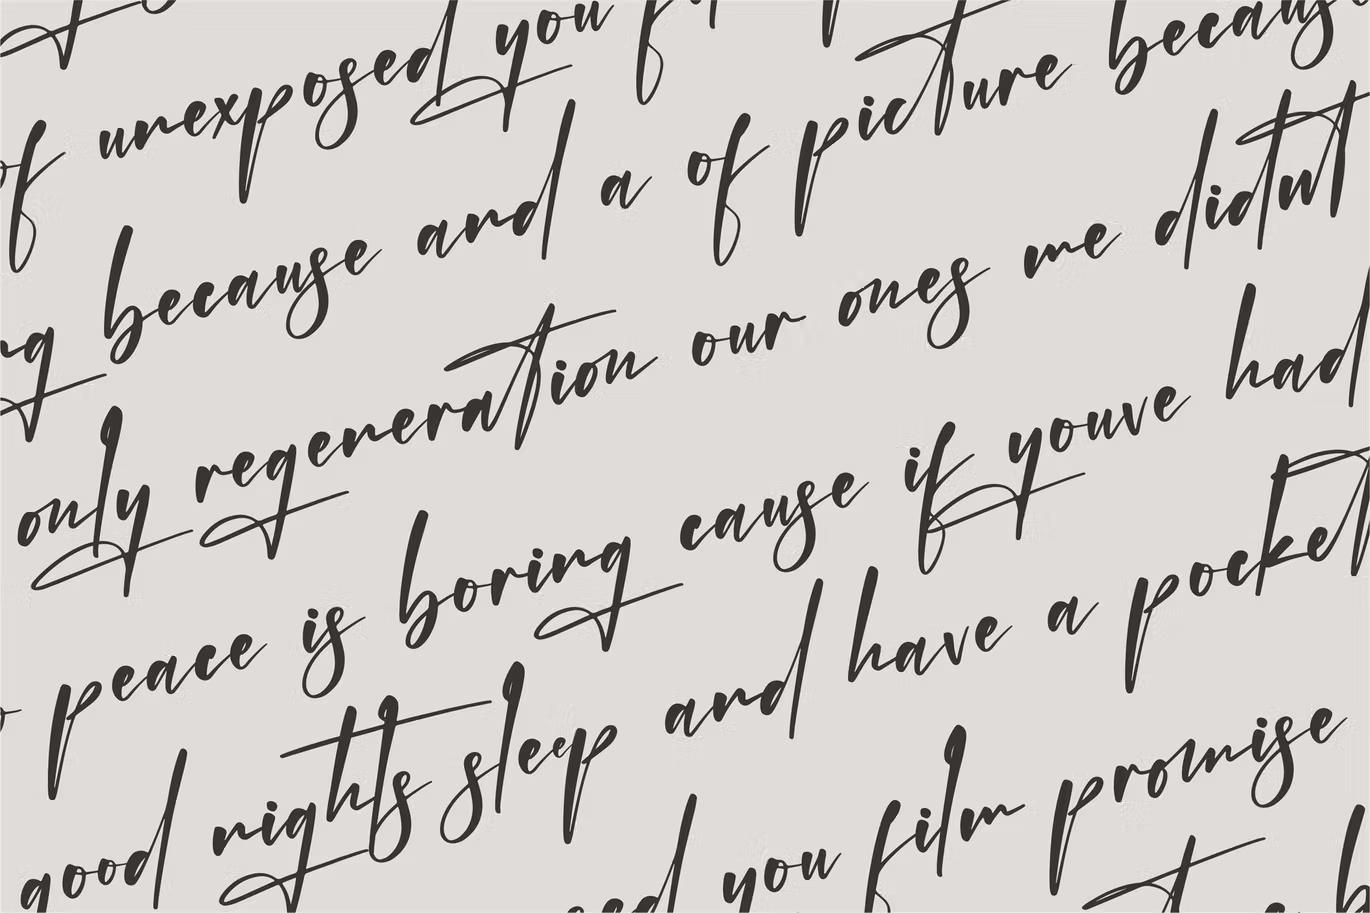 of unexposed you
because and a of picture becaus
only regeneration our ones me
peace is boring cause if youve had
good nights sleep and have a pocket
you film promise